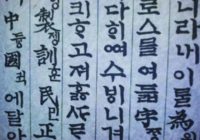 니라내이를為윙
로스믈여듧字ᄍᆞᆼ
다히여수비니겨
킈ᄒᆞ고져
製졩訓훈民민正
中듕國귁에달아